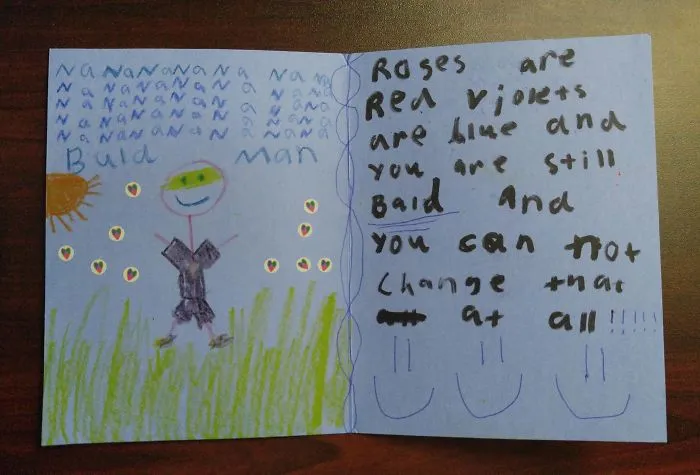 Na Na Na Na Na Na Na Na
Na Na Na Na Na Na Na Na
Na Na Na Na Na Na Na Na
Na Na Na Na Na Na Na Na
Na Na Na Na Na Na Na Na
Bald Man
Roses are
Red violets
are blue and
you are still
Bald And
you can not
Change that
at all !!!!!!